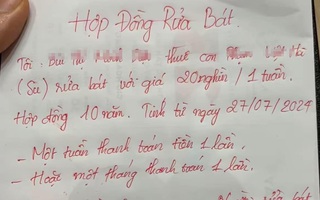 Hợp Đồng Rửa Bát.
Tôi: Bùi Thị thuê con Hà
(Su) rửa bát với giá 20 nghìn / 1 tuần.
Hợp đồng 10 năm. Tính từ ngày 27/07/2024
- Một tuần thanh toán tiền 1 lần.
- Hoặc một tháng thanh toán 1 lần.
rửa bát